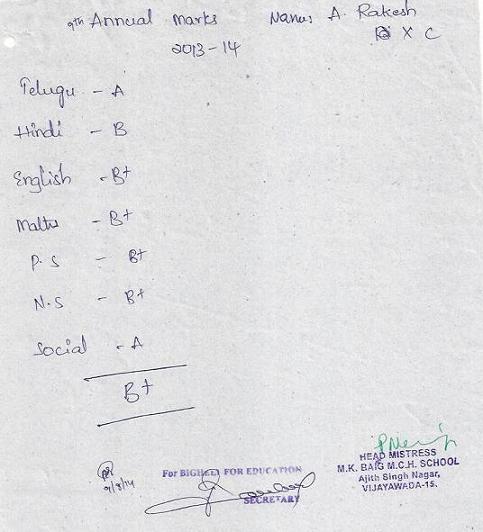 9th Annual Marks
Name: A. Rakesh
X C
2013-14
Telugu - A
Hindi - B
English - B+
Maths - B+
P.S - B+
N.S - B+
Social - A
B+
For BIGHELP FOR EDUCATION
SECRETARY
HEAD MISTRESS
M.K. BAIG M.C.H. SCHOOL
Ajith Singh Nagar,
VIJAYAWADA-15.